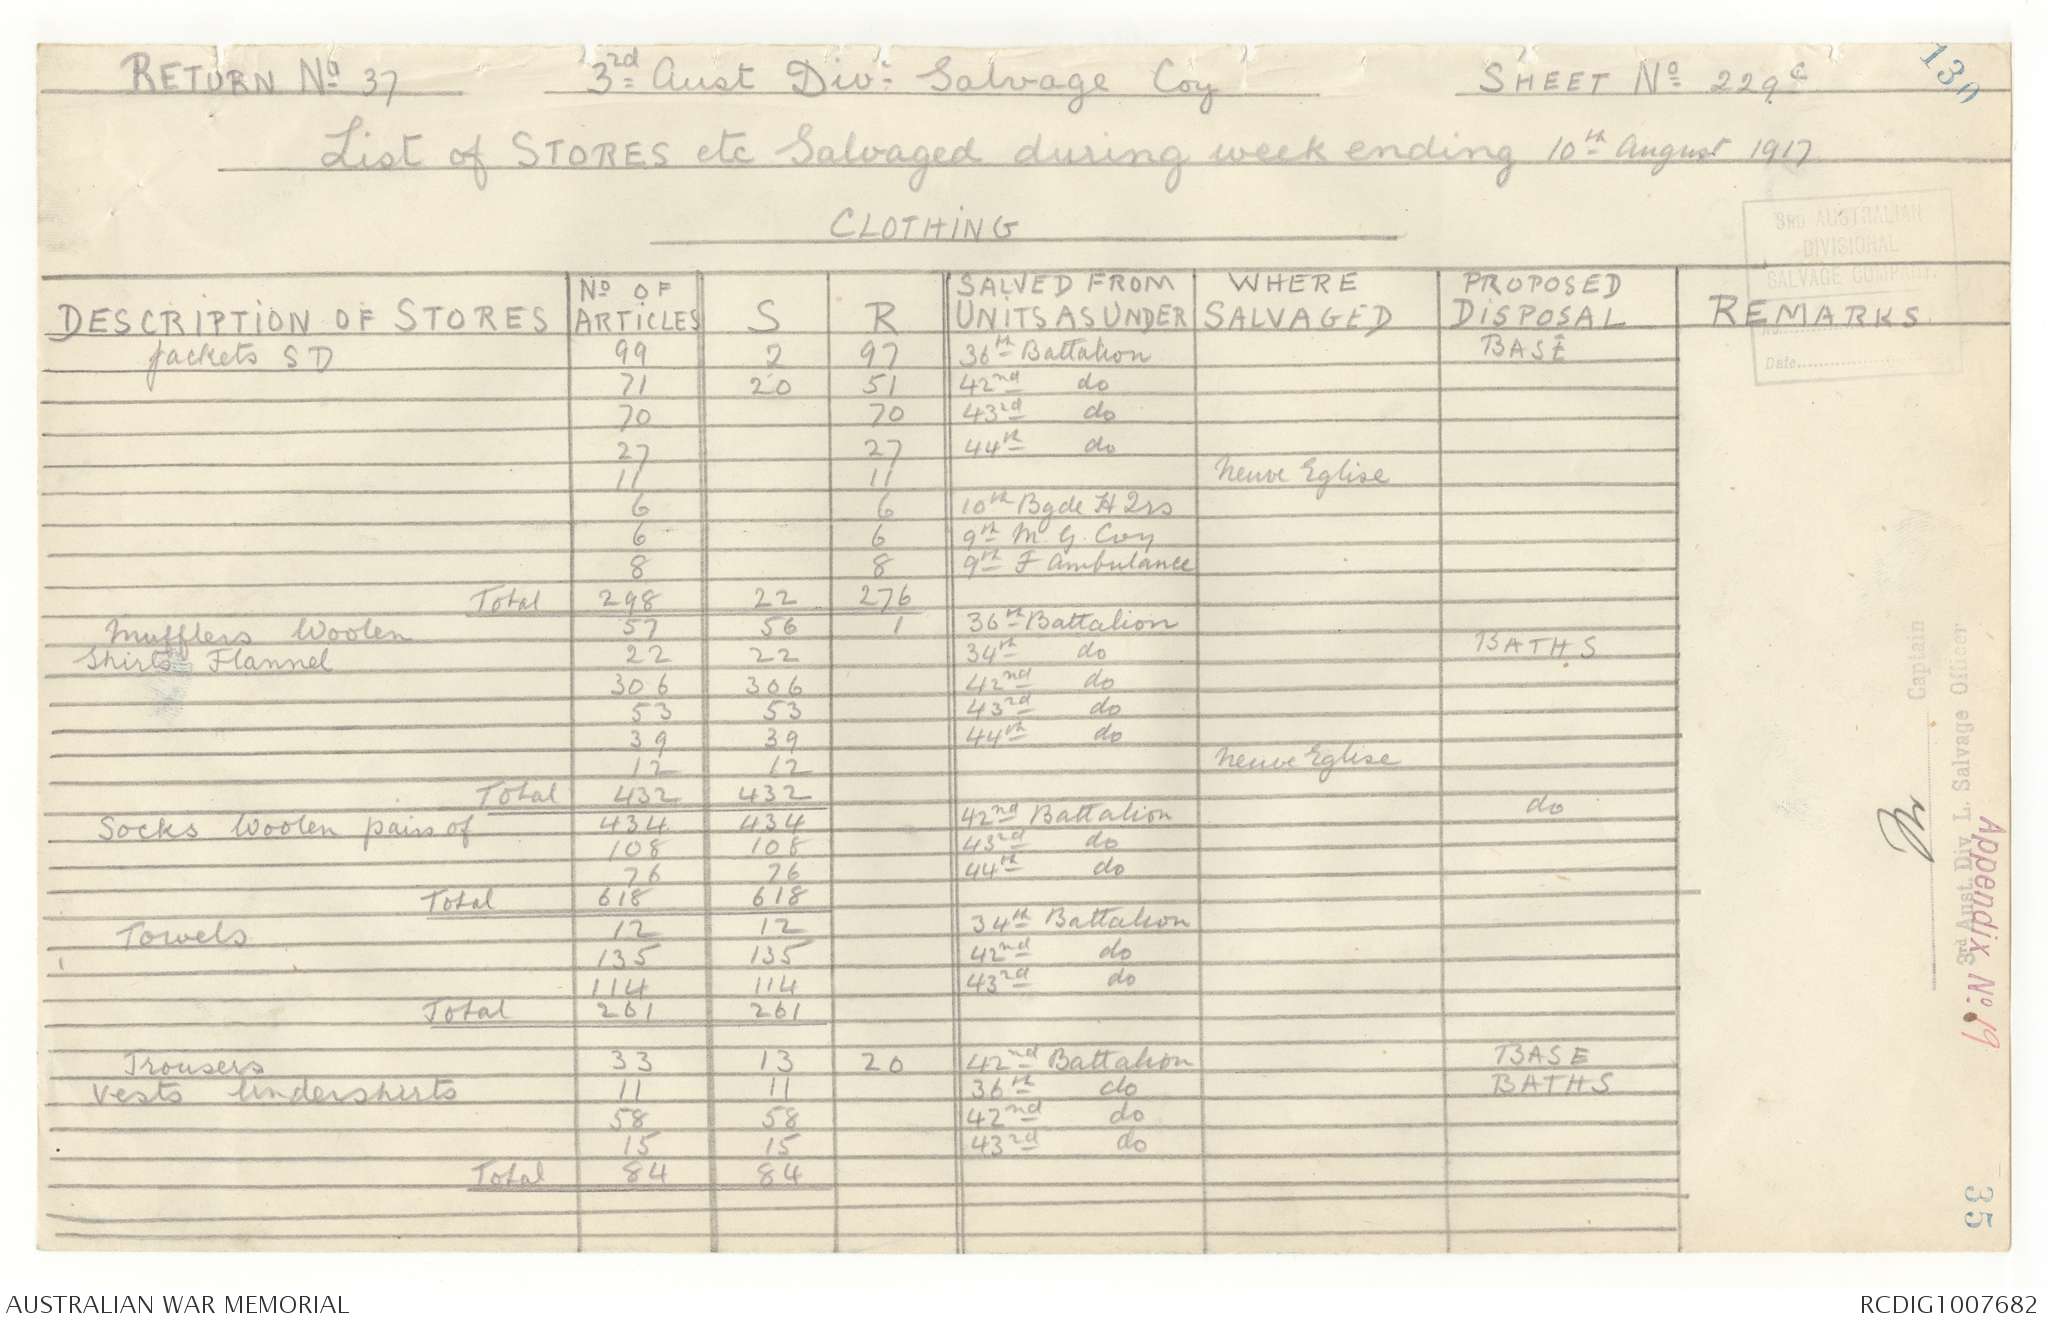 RETURN No 37 3rd Aust Div: Salvage Coy SHEET No 229c
130
List of STORES etc Salvaged during week ending 10th August 1917
CLOTHING
3RD AUSTRALIAN
DIVISIONAL
SALVAGE COMPANY.
No.
Date
DESCRIPTION OF STORES No OF ARTICLES S R SALVED FROM UNITS AS UNDER WHERE SALVAGED PROPOSED DISPOSAL REMARKS
Jackets SD 99 2 97 36th Battalion BASE
71 20 51 42nd do
70 70 43rd do
27 27 44th do
11 11 Neuve Eglise
6 6 10th Bgde H Qrs
6 6 9th M. G. Coy
8 8 9th F Ambulance
Total 298 22 276
Mufflers Woolen 57 56 1 36th Battalion
Shirts Flannel 22 22 34th do BATHS
306 306 42nd do
53 53 43rd do
39 39 44th do
12 12 Neuve Eglise
Total 432 432
Socks Woolen pairs of 434 434 42nd Battalion do
108 108 43rd do
76 76 44th do
Total 618 618
Towels 12 12 34th Battalion
135 135 42nd do
114 114 43rd do
Total 261 261
Trousers 33 13 20 42nd Battalion BASE
Vests Undershirts 11 11 36th do BATHS
58 58 42nd do
15 15 43rd do
Total 84 84
Captain
3rd Aust. Div. L. Salvage Officer
Appendix No. 19
35
AUSTRALIAN WAR MEMORIAL RCDIG1007682